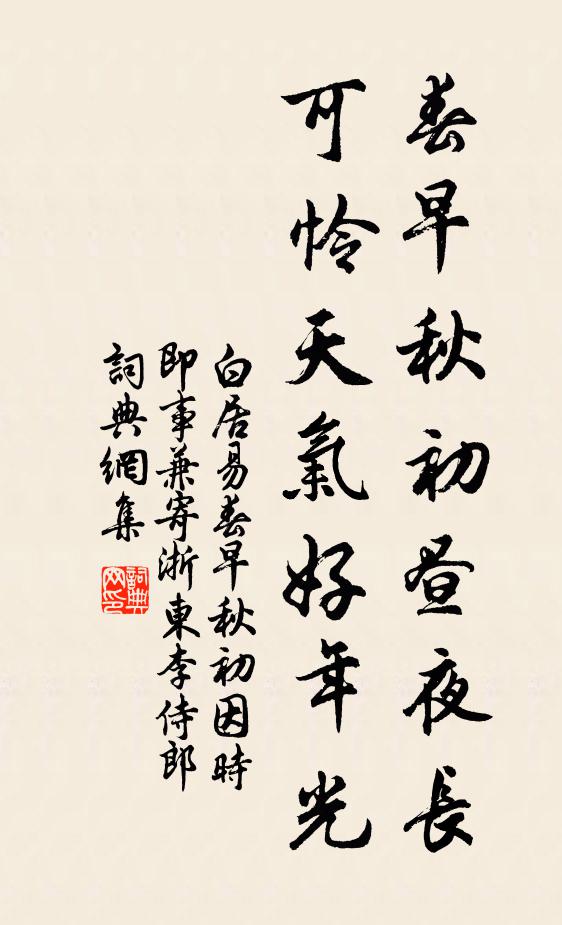 春早秋初昼夜長
可怜天氣好年光
白居易春早秋初因時
即事兼寄浙東李侍郎
詞典網集
詞典網印